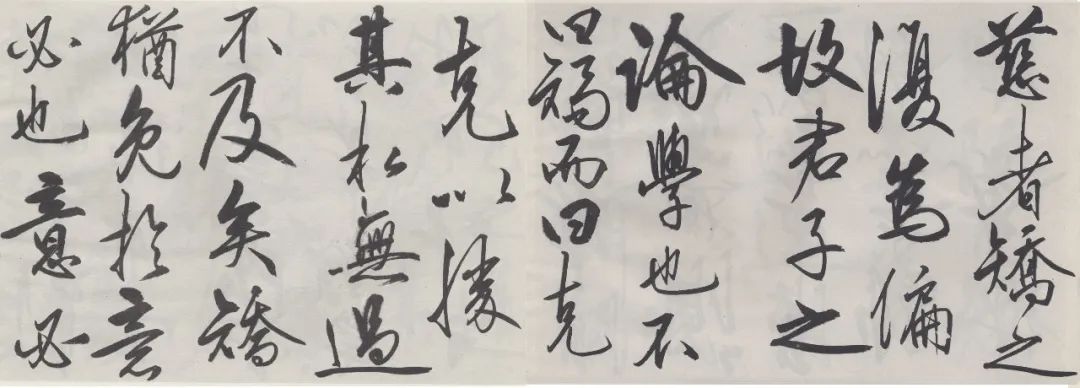 慈者矯之
復為偏
故君子之
論學也不
曰矯而曰克
克以勝
其私無過
不及矣矯
猶免於意
必也意必